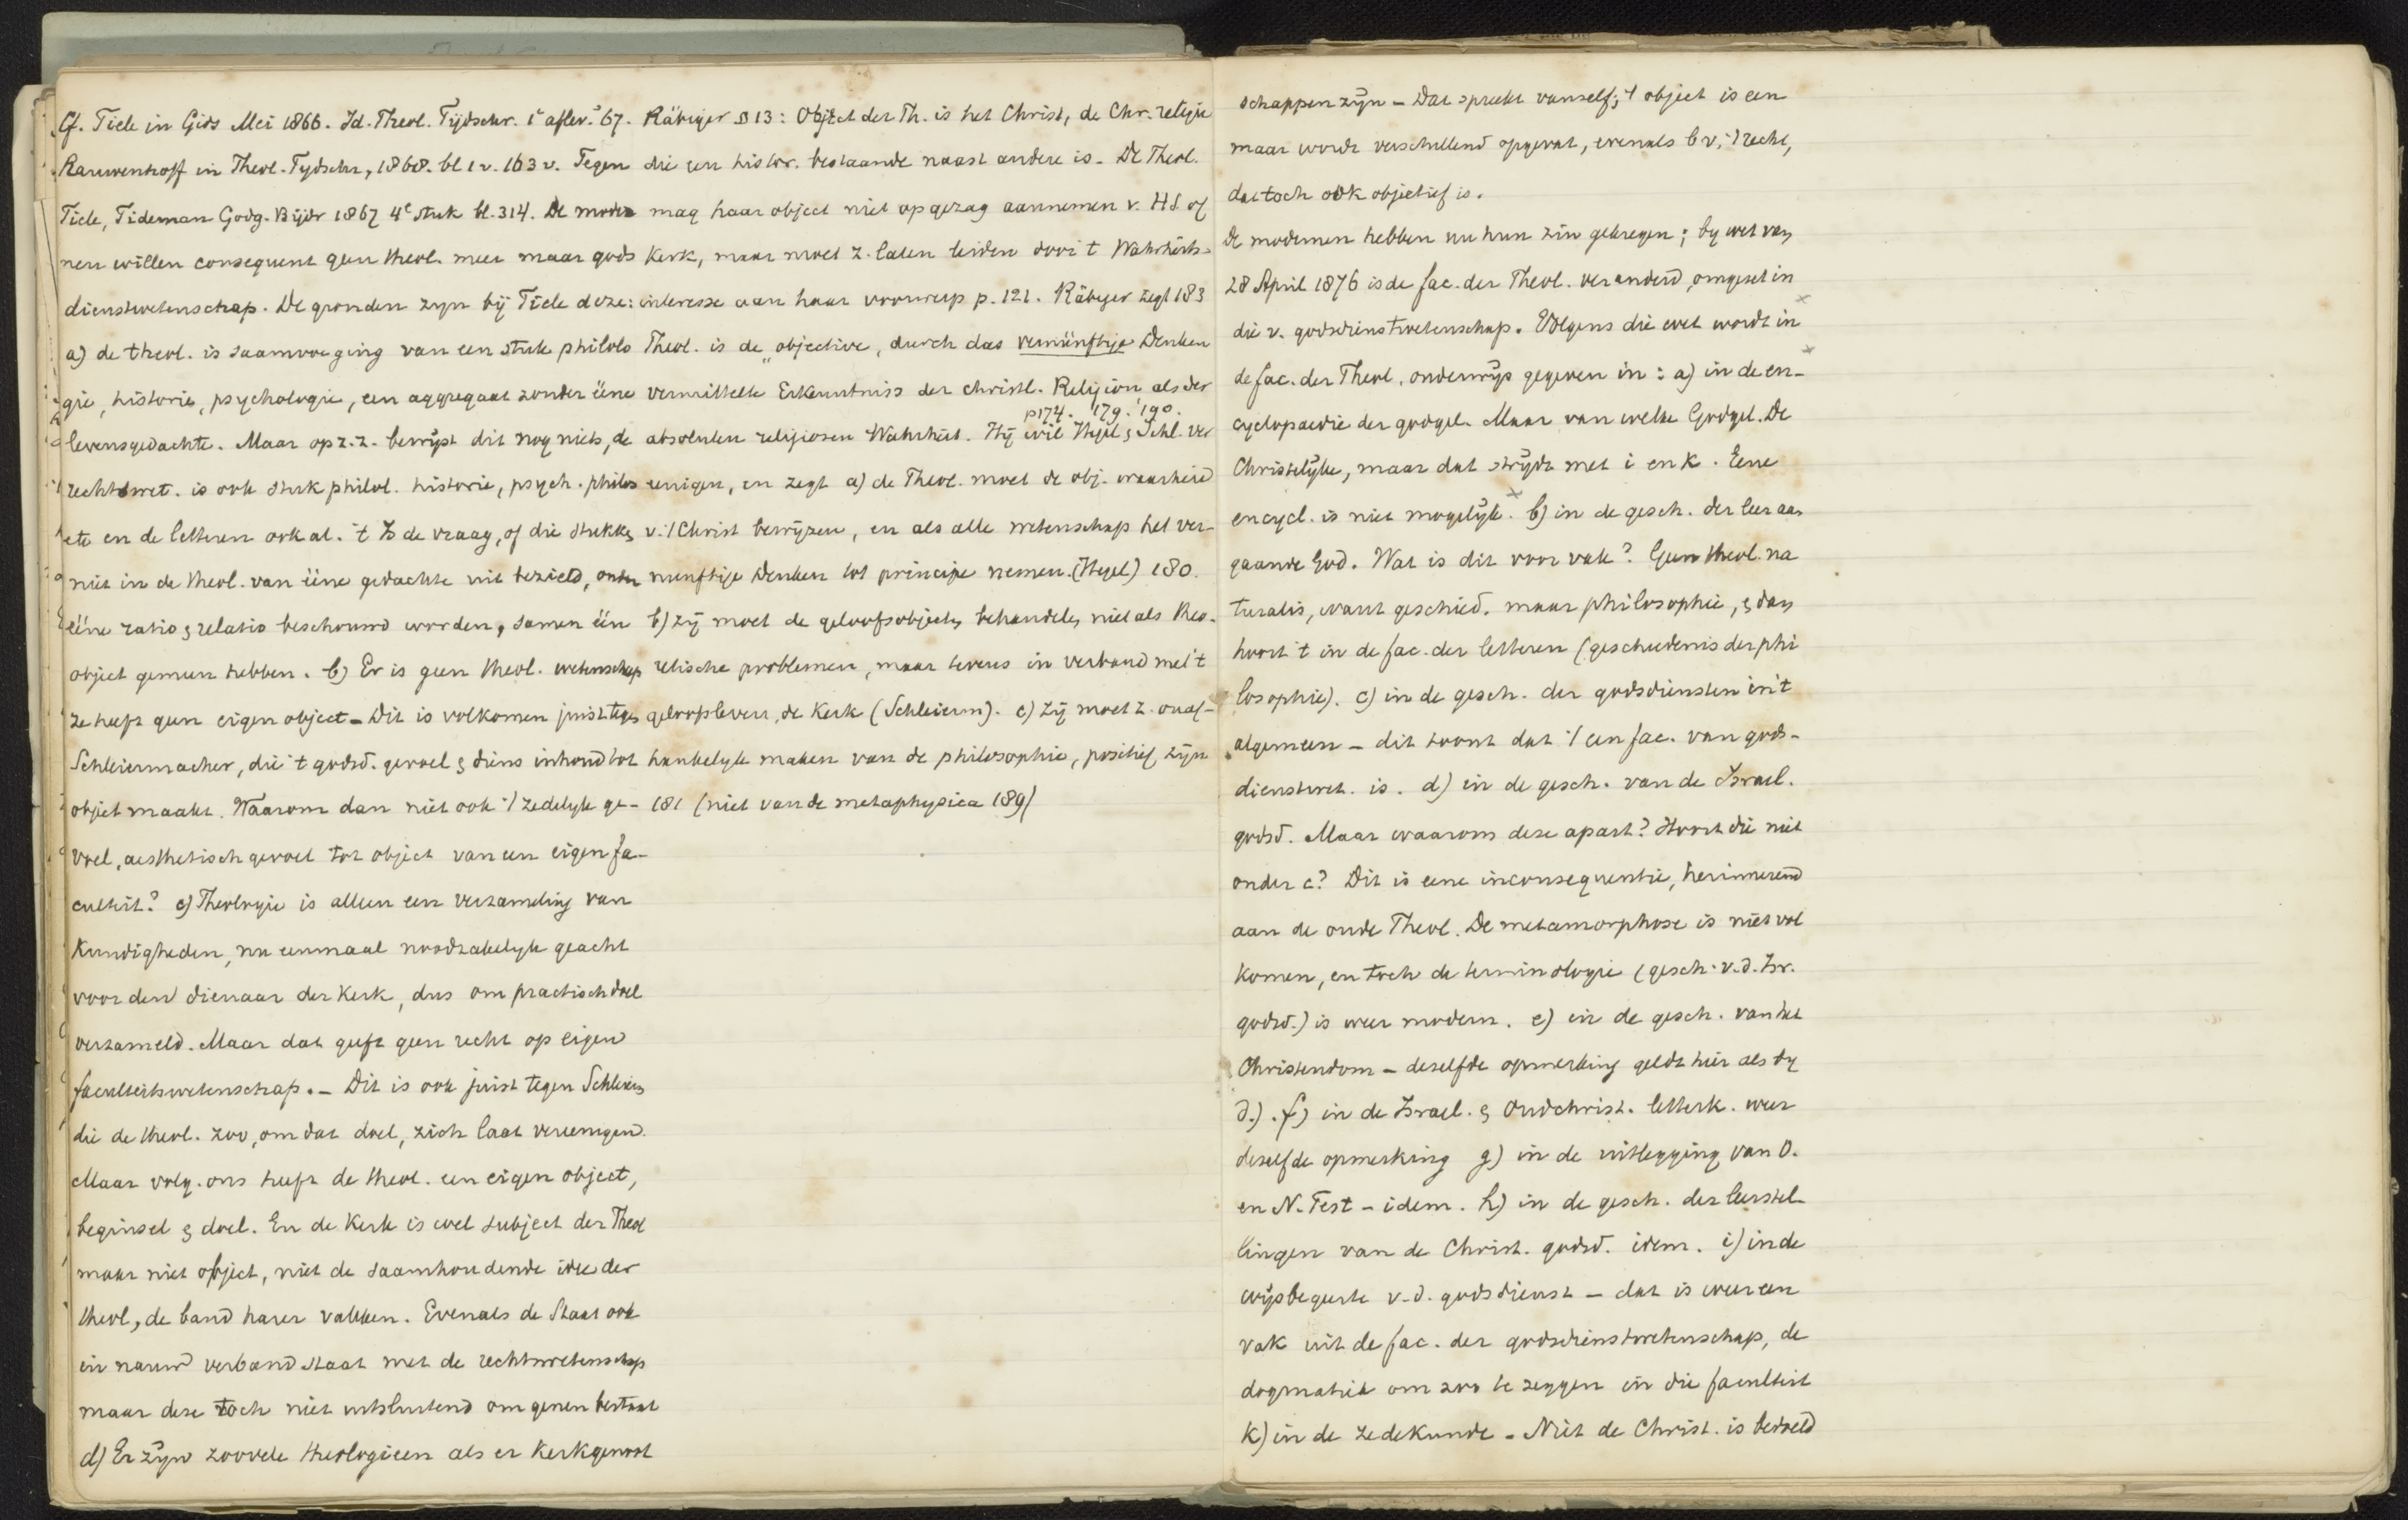 Cf. Tiele in Gids Mei 1866. Id. Theol. Tijdschr. 1e aflev. '67.
Rauwenhoff in Theol. Tydschr, 1868. bl 1 v. 163 v. Tegen
Tiele, Tideman Godg. Bijdr 1867 4e stuk bl. 314. De moder
nen willen consequent geen theol. meer maar gods
dienstwetenschap. De gronden zyn bij Tiele deze:
a) de theol. is saamvoeging van een stuk philolo
gie, historie, psychologie, een aggregaat zonder ééne
levensgedachte. Maar op z.z. bewijst dit nog niets, de
rechtswet. is ook stuk philol. historie, psych. philos
etc en de letteren ook al. 't Is de vraag, of die stukken
niet in de theol. van ééne gedachte uit bezield, onder
ééne ratio & relatio beschouwd worden, samen één
object gemeen hebben. b) Er is geen theol. wetenschap
ze heeft geen eigen object – Dit is volkomen juist tegen
Schleiermacher, die 't godsd. gevoel & diens inhoud tot
object maakt. Waarom dan niet ook 't zedelyk ge-
voel, aesthetisch gevoel tot object van een eigen fa-
culteit? c) Theologie is alleen een verzameling van
kundigheden, nu eenmaal noodzakelyk geacht
voor den dienaar der Kerk, dus om practisch doel
verzameld. Maar dat geeft geen recht op eigen
faculteitswetenschap. – Dit is ook juist tegen Schleierm
die de theol. zoo, om dat doel, zich laat vereenigen.
Maar volg. ons heeft de theol. een eigen object,
beginsel & doel. En de Kerk is wel subject der Theol
maar niet object, niet de saamhoudende idee der
theol, de band harer vakken. Evenals de Staat ook
in nauw verband staat met de rechtswetenschap
maar deze toch niet uitsluitend om genen bestaat
d) Er zijn zoovele theologieen als er Kerkgenoot
Räbiger § 13: Object der Th. is het Christ, de Chr. religie
die een histor. bestaande naast andere is. De Theol.
mag haar object niet op gezag aannemen v. HS of
Kerk, maar moet z. laten leiden door 't Wahrheits-
interesse aan haar voorwerp p. 121. Räbiger zegt 183
Theol. is de "objective, durch das vernünftige Denken
vermittelte Erkenntniss der christl. Religion als der
p174. 179. 190.
absoluten religiosen Wahrheit. Hij wil Hegel & Schl. ver
eenigen, en zegt a) de Theol. moet de obj. waarheid
v. 't Christ bewijzen, en als alle wetenschap het ver-
nunftige Denken tot principe nemen. (Hegel) 180.
b) zij moet de geloofsobjecten behandelen niet als theo-
retische problemen, maar tevens in verband met 't
geloofsleven, de Kerk (Schleierm). c) zij moet z. onaf-
hankelyk maken van de philosophie, positief zijn
181 (niet van de metaphysica 189)
schappen zijn – Dat spreekt vanself; 't object is een
maar wordt verschillend opgevat, evenals b v. 't recht,
dat toch ook objectief is.
De modernen hebben nu hun zin gekregen; by wet van
28 April 1876 is de fac. der Theol. veranderd, omgeset in
die v. godsdienstwetenschap. Volgens die wet wordt in
de fac. der Theol. onderwijs gegeven in: a) in de en-
cyclopaedie der godgel. Maar van welke Godgel. De
Christelijke, maar dat strijdt met i en k. Eene
encycl. is niet mogelijk. b) in de gesch. der leer aan
gaande God. Wat is dit voor vak? Geen theol. na
turalis, want geschied. maar philosophie, & dan
hoort 't in de fac. der letteren (geschiedenis der phi
losophie). c) in de gesch. der godsdiensten in 't
algemeen – dit toont dat 't een fac. van gods-
dienstwet. is. d) in de gesch. van de Israel.
godsd. Maar waarom deze apart? Hoort die niet
onder c? Dit is eene inconsequentie, herinnerend
aan de oude Theol. De metamorphose is niet vol
komen, en toch de terminologie (gesch. v. d. Isr.
godsd.) is weer modern. e) in de gesch. van het
Christendom – deselfde opmerking geldt hier als by
d.). f) in de Israel. & Oudchrist. letterk. weer
deselfde opmerking g) in de uitlegging van O.
en N. Test – idem. h) in de gesch. der leerstel-
lingen van de Christ. godsd. idem. i) in de
wijsbegeerte v. d. godsdienst – dat is weer een
vak uit de fac. der godsdienstwetenschap, de
dogmatiek om zoo te zeggen in die faculteit
k) in de zedekunde – Niet de Christ. is bedoeld